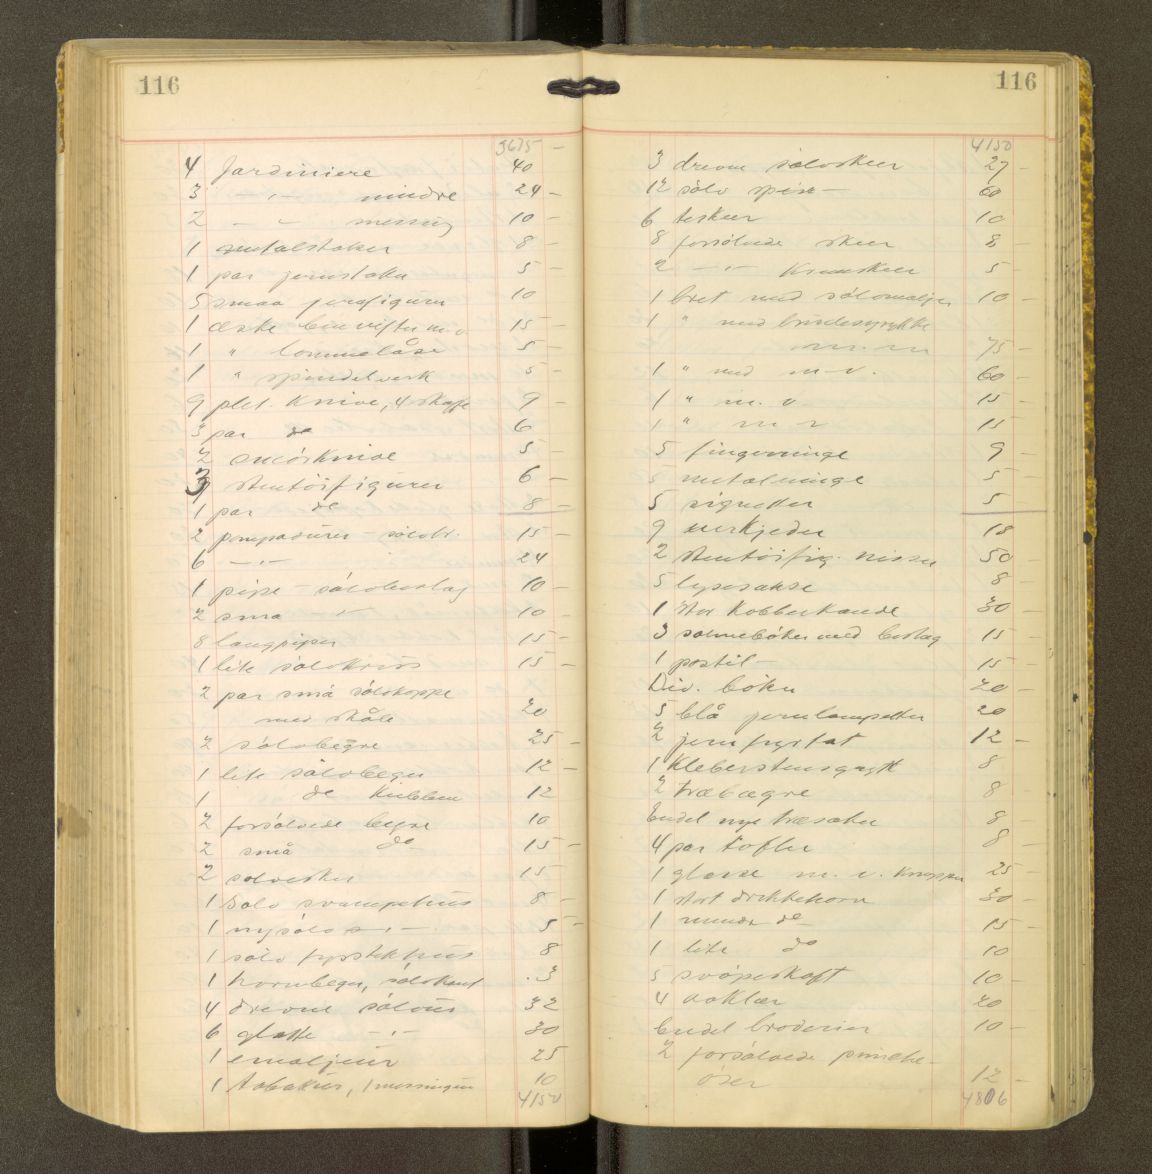 116
3675 –
4 Jardiniere 40
3 – " – mindre 24 –
2 – " – messing 10 –
1 metalstaker 8 –
1 par jernstaker 5 –
5 smaa jernfigurer 10
1 æske ben vifter m.v. 15 –
1 " lommelåse 5 –
1 " spindelverk 5 –
9 plet. Knive, 4 skaffe 9 –
3 par do 6
2 smörknive 5 –
3 stentöifigurer 6 –
1 par do 8 –
2 pompadurer – sölvb. 15 –
6 – " – 24
1 pipe – sölvbeslag 10 –
2 små – " – 10 –
8 langpiper 15 –
1 lite sölvkrus 15 –
2 par små sölvkoppe
med skåle 20
2 sölvbegre 25 –
1 lite sölvbeger 12 –
1 do 12
2 forsölvede begre 10
2 små do 15 –
2 sölvesker 15
1 Sölv svampehus 8 –
1 nysölv s. " – 5 –
1 sölv fyrstikhus 8
1 hornbeger, sölvkant 3
4 drevne sölvus 32
6 glatte – " – 30
1 emaljeur 25
1 tobakur, 1 messingur 10
4150
116
4150
3 drevne sölvskeer 27 –
12 sölv spise – 60
6 teskeer 10
8 forsölvede skeer 8 –
2 – " – Kremskeer 5 –
1 bret med sölvmaljer 10 –
1 " med brudesmykke
m.m. 75 –
1 " med m.v. 60 –
1 " m.v. 15 –
1 " m.v. 15
5 fingerringe 9 –
5 metalringe 5 –
5 signetter 5 –
9 urkjeder 18
2 stentöifig. nisser 50 –
5 lysesakse 8 –
1 stor Kobberkande 30 –
3 salmebøker med beslag 15 –
1 postil – 15 –
Div. bøker 20 –
5 blå jernlampetter 20
2 jern fyrfat 12 –
1 Kleberstensgryte 8
2 træbægre 8
Endel nye træsaker 8 –
4 par tøfler 8 –
1 glasse m. v. knapper 25 –
1 stort drikkehorn 30 –
1 mindre do 15 –
1 lite do 10
5 svöpeskaft 10 –
4 aaklær 20
Endel broderier 10 –
2 forsölvede punche-
öser 12 –
4806